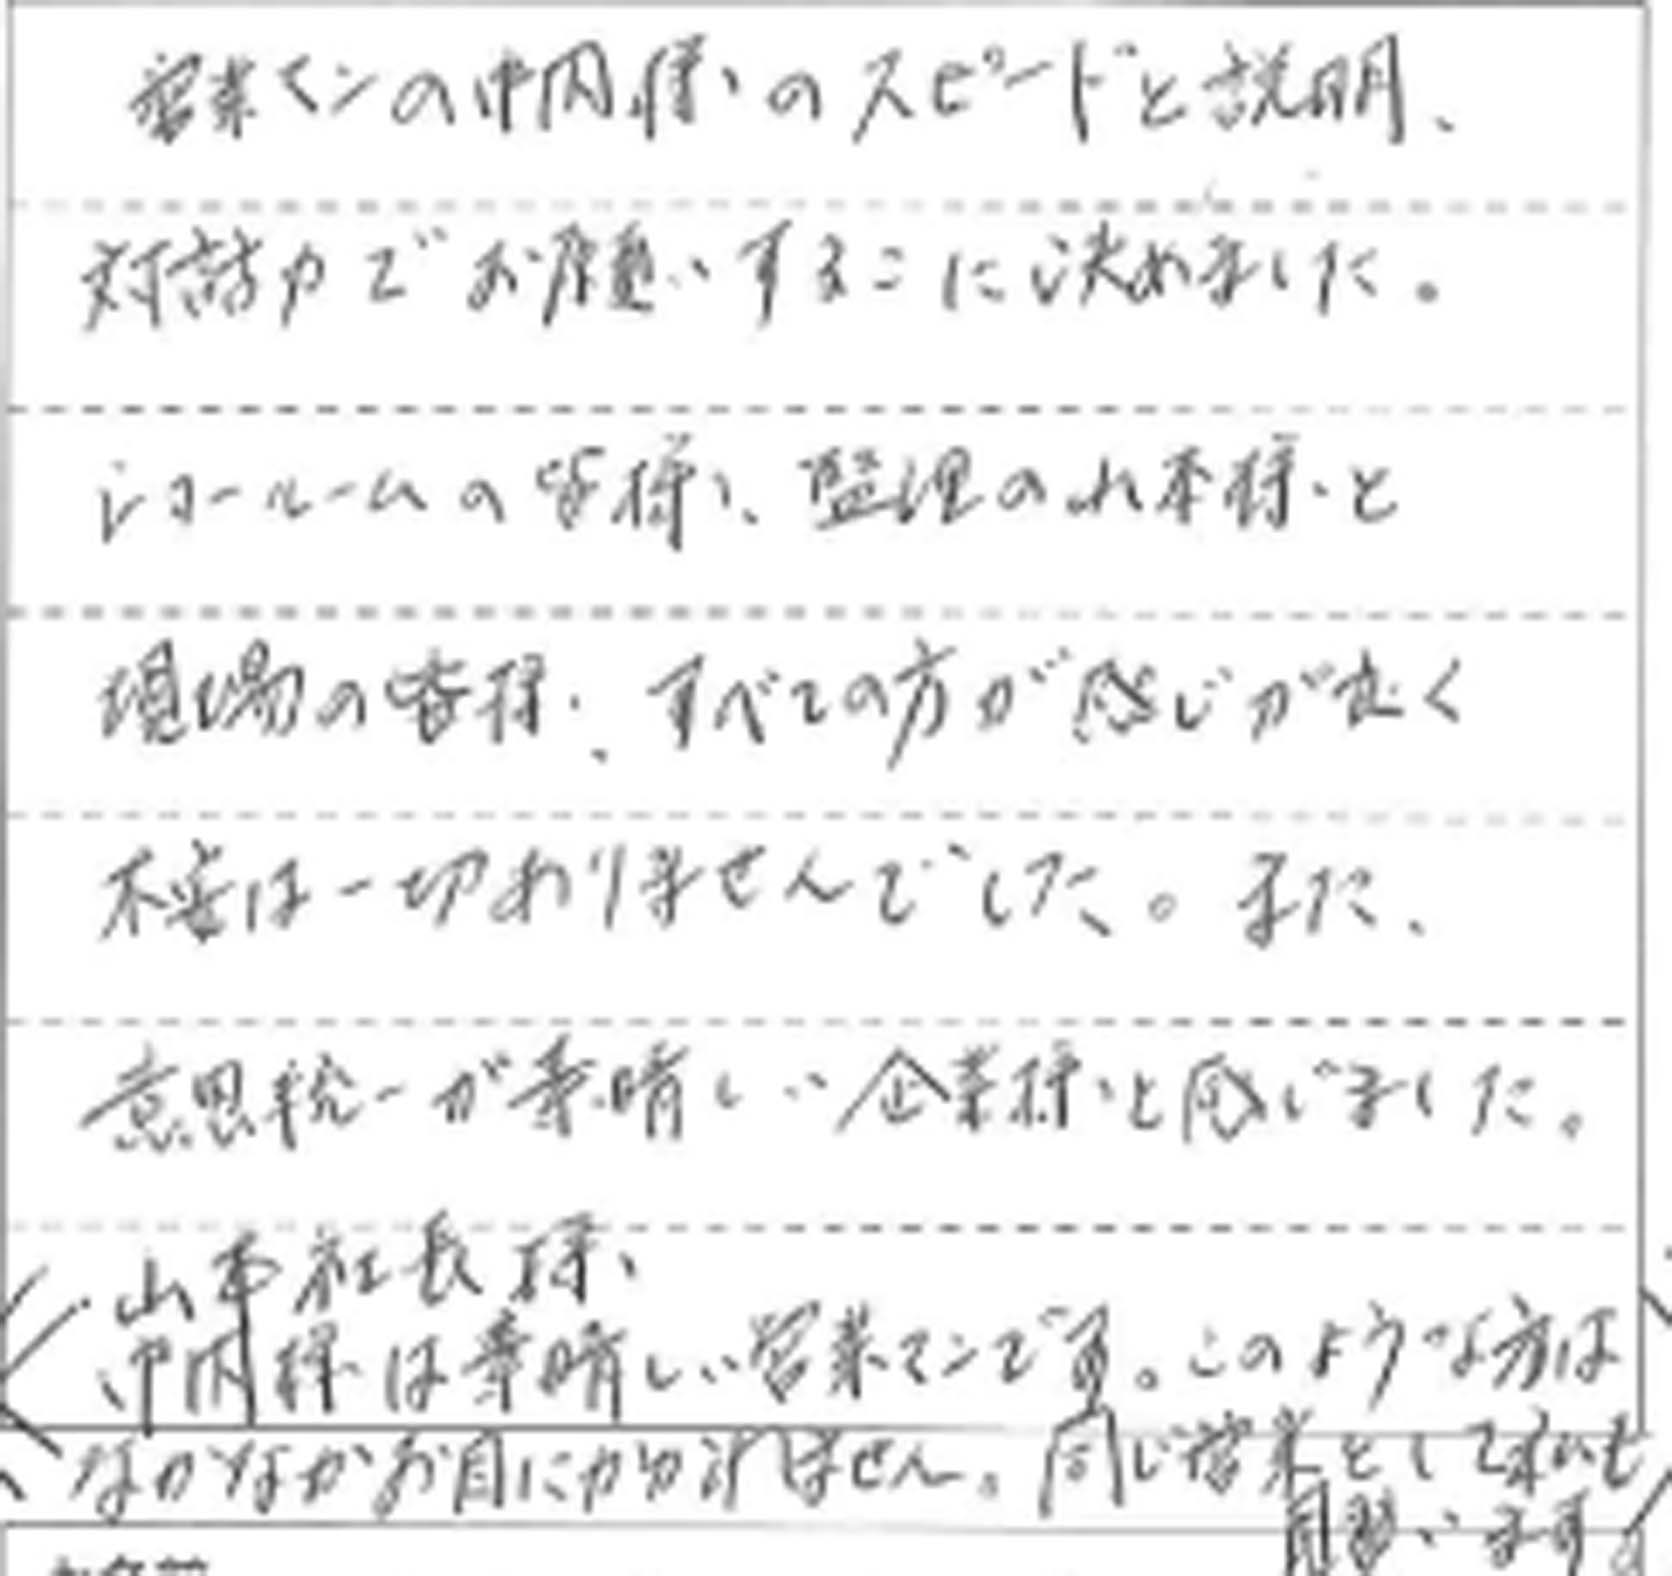 営業マンの中内様のスピードと説明、
対話力でお願いするこに決めました。
ショールームの皆様、監理の山本様と
現場の皆様、すべての方が感じが良く
不安は一切ありませんでした。また、
意思統一が素晴しい企業様と感じました。
山本社長様、
中内様は素晴しい営業マンです。このような方は
なかなかお目にかかれません。同じ営業として私も
見習います。